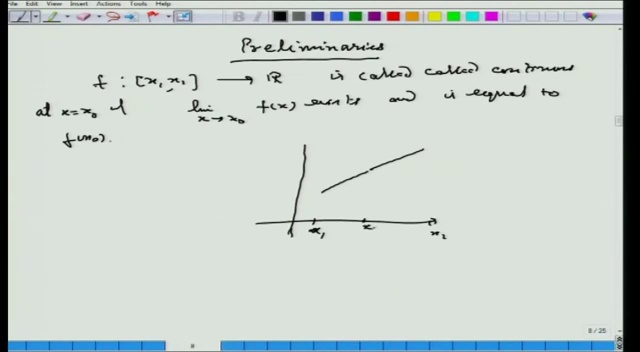 File Edit View Insert Actions Tools Help
Preliminaries
f : [x₁, x₂] → ℝ is called called continuous
at x=x₀ if lim x→x₀ f(x) exists and is equal to
f(x₀).
x₁ x x₂
8 / 25
8